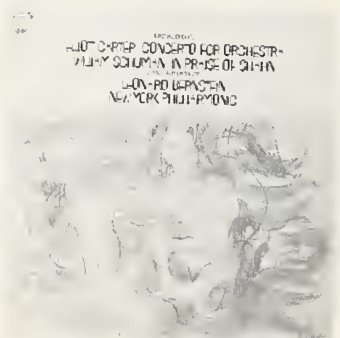 ELLIOTT CARTER: CONCERTO FOR ORCHESTRA
WILLIAM SCHUMAN: IN PRAISE OF SHAHN
LEONARD BERNSTEIN
NEW YORK PHILHARMONIC